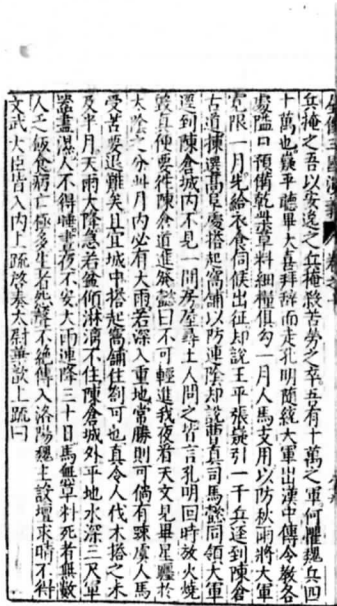 兵掩之吾以安逸之兵掩殺苦勞之卒吾有十萬之軍何懼魏兵四
十萬也嶷平聽畢大喜拜辭而走孔明隨統大軍出漢中傳令教各
處隘口預備乾柴草料細糧俱勾一月人馬支用以防秋雨將大軍
寬限一月先給衣食伺候出征却說王平張嶷引一千兵逕到陳倉
古道揀選高阜處搭起窩舖以防連陰却說曹真司馬懿同領大軍
逕到陳倉城內不見一間房屋尋土人問之皆言孔明回時放火燒
毀真便要徃陳倉道進發懿曰不可輕進我夜看天文見畢星躔於
太陰之分此月內必有大雨若深入重地常勝則可倘有疎虞人馬
受苦要退難矣且宜城中搭起窩舖住劄可也真令人伐木搭之未
及半月天雨大降急若盆傾淋漓不住陳倉城外平地水深三尺軍
器盡濕人不得睡晝夜不安大雨連降三十日馬無草料死者無數
人乏飯食病亡極多生者怨聲不絕傳入洛陽魏主設壇求晴不得
文武大臣皆入內上疏啓奏太尉華歆上疏曰